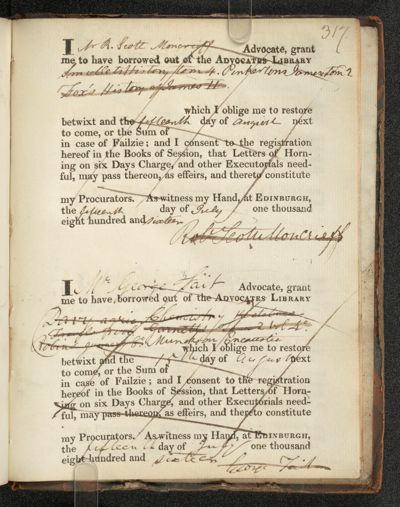 317.
I Mr R. Scott Moncrieff Advocate, grant
me to have borrowed out of the ADVOCATES LIBRARY
Smollett's History tom 4. Pinkertons James tom 2
Fox's History of James II
which I oblige me to restore
betwixt and the fifteenth day of August next
to come, or the Sum of
in case of Failzie; and I consent to the registration
hereof in the Books of Session, that Letters of Horn-
ing on six Days Charge, and other Executorials need-
ful, may pass thereon, as effeirs, and thereto constitute
my Procurators. As witness my Hand, at EDINBURGH,
the fifteenth day of July one thousand
eight hundred and sixteen
Robt Scott Moncrieff
I Mr George Tait Advocate, grant
me to have borrowed out of the ADVOCATES LIBRARY
Davy Chemistry
2 vol
which I oblige me to restore
betwixt and the 15th day of August next
to come, or the Sum of
in case of Failzie; and I consent to the registration
hereof in the Books of Session, that Letters of Horn-
ing on six Days Charge, and other Executorials need-
ful, may pass thereon, as effeirs, and thereto constitute
my Procurators. As witness my Hand, at EDINBURGH,
the fifteenth day of July one thousand
eight hundred and sixteen
George Tait